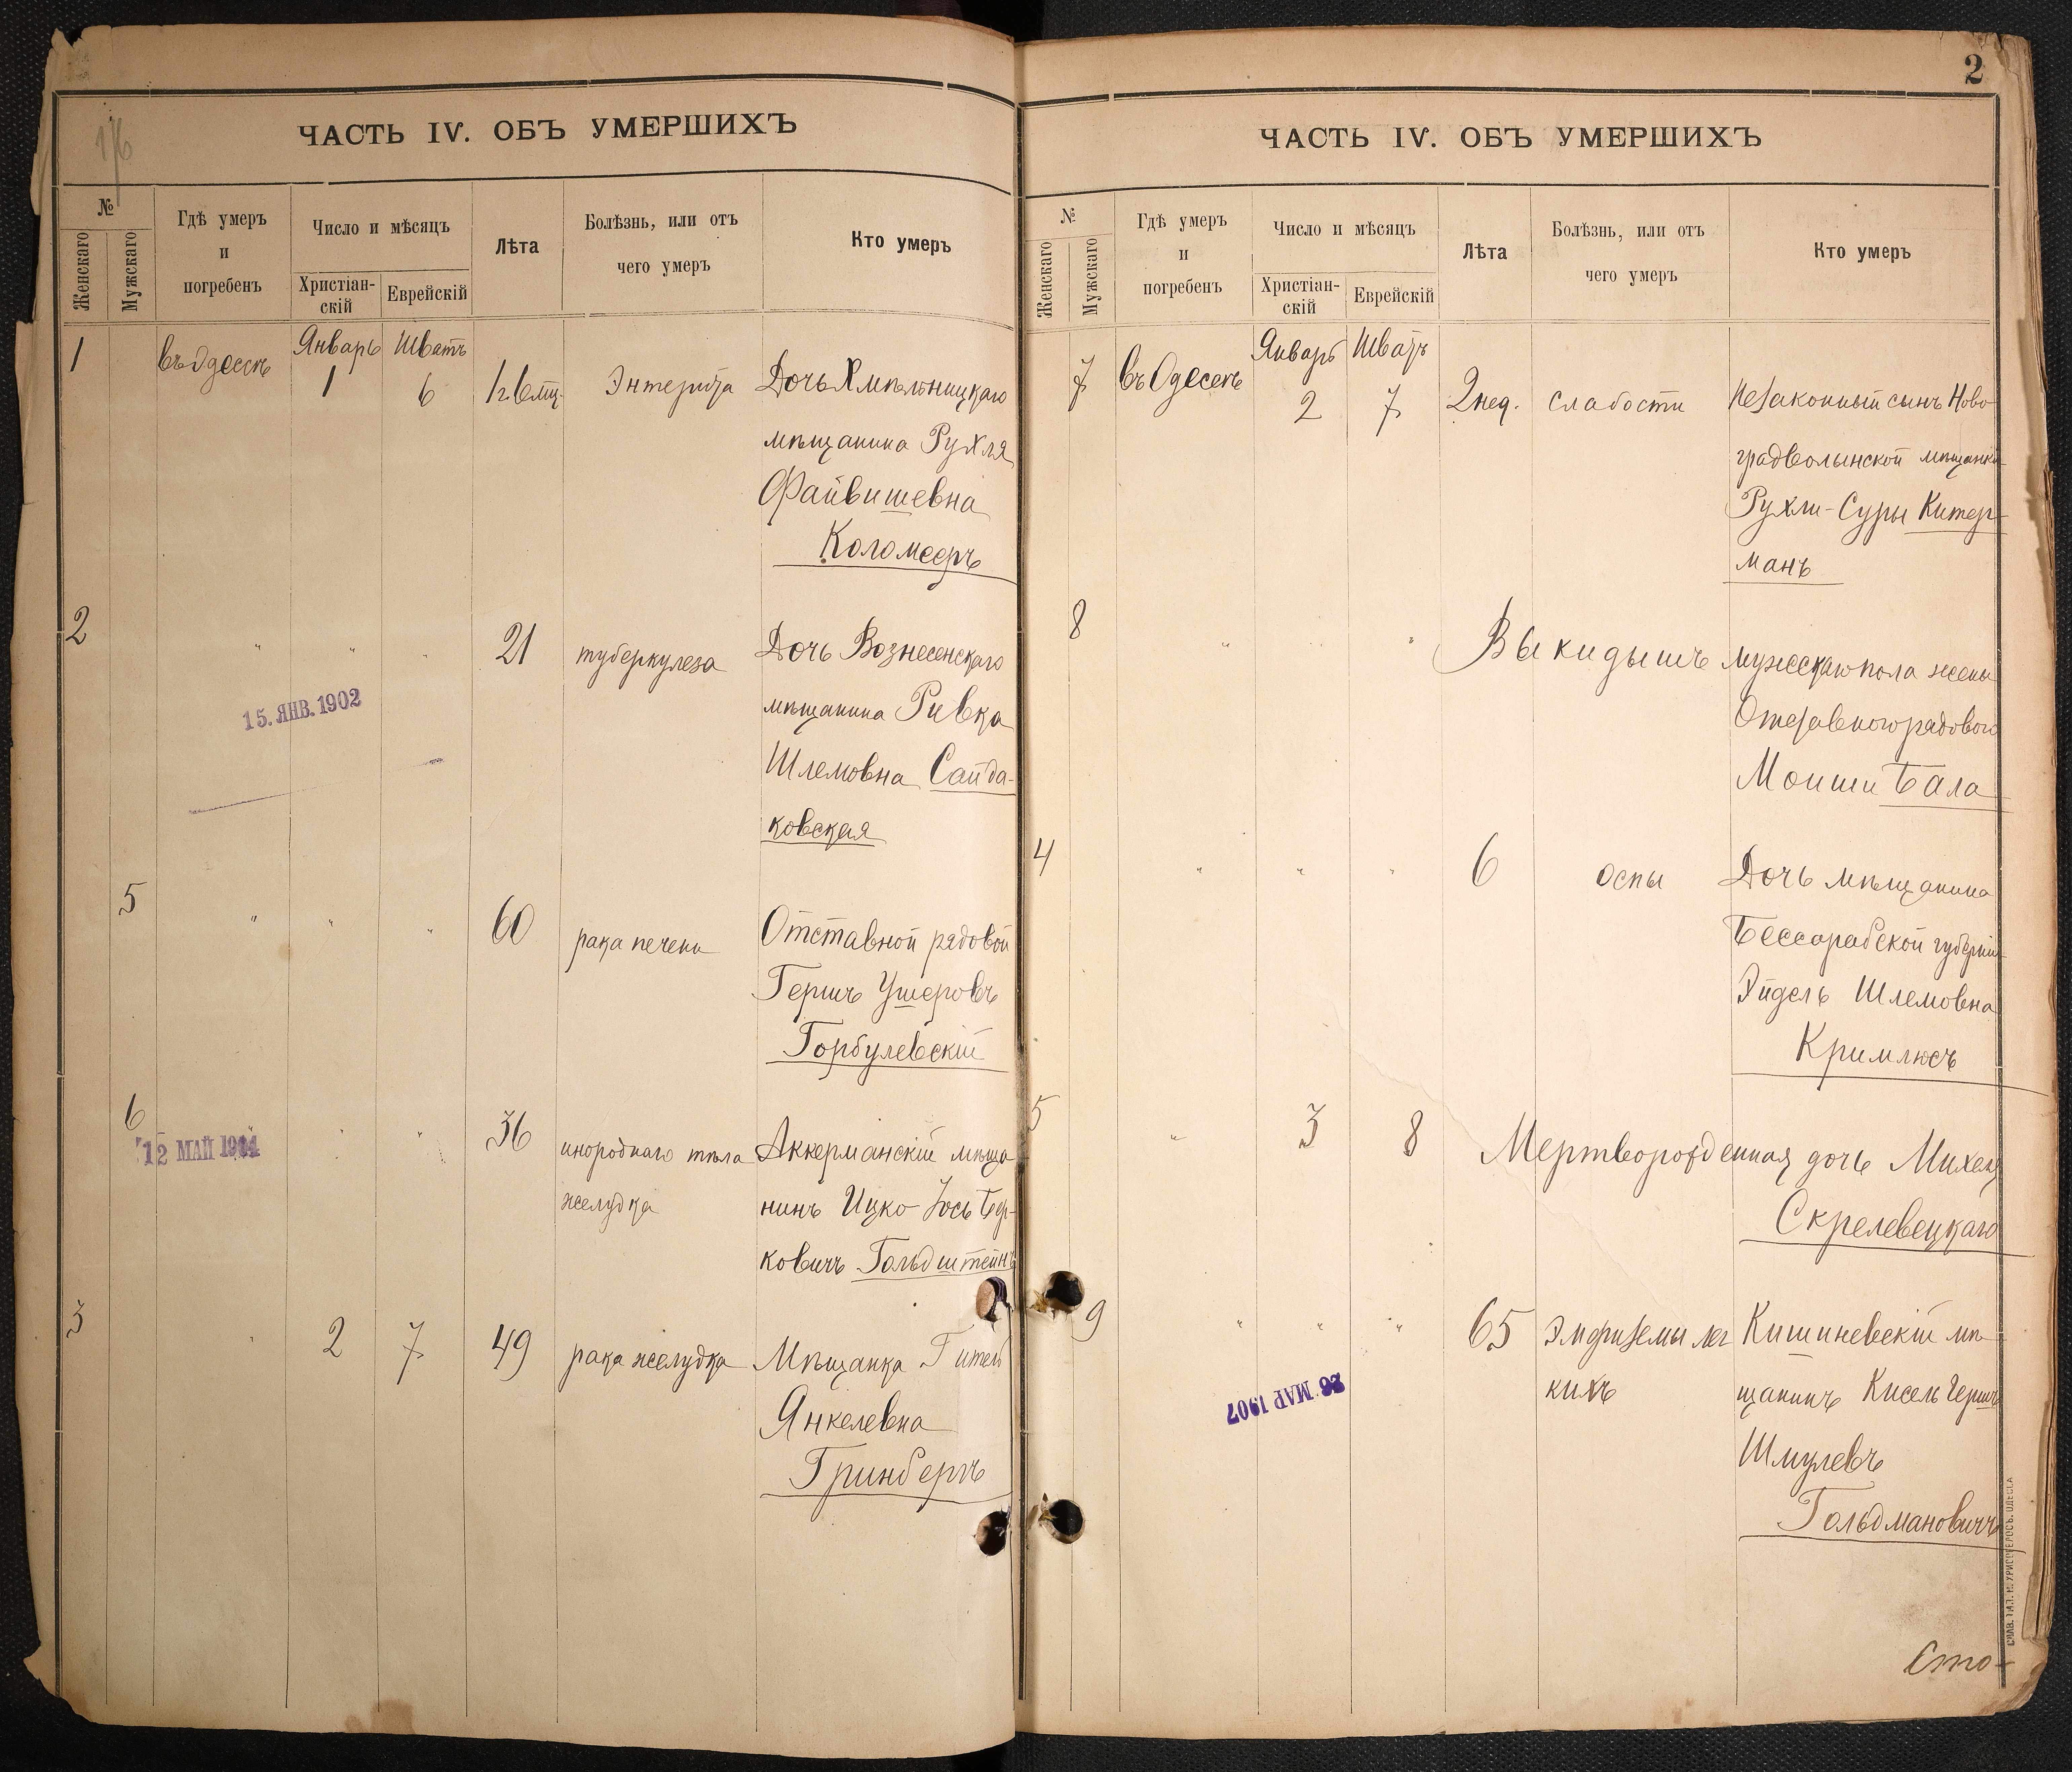 16
ЧАСТЬ IV. ОБЪ УМЕРШИХЪ
№
Женскаго
Мужскаго
Гдѣ умеръ
и
погребенъ
Число и мѣсяцъ
Христіан-
скій
Еврейскій
Лѣта
Болѣзнь, или отъ
чего умеръ
Кто умеръ
1 въ Одессѣ Январь 1 Шватъ 6 1 г. 6 мц. Энтерита Дочь Хмѣльницкаго
мѣщанина Рухля
Файвишевна
Коломееръ
2 " " " 21 туберкулеза Дочь Вознесенскаго
мѣщанина Ривка
Шлемовна Сайда-
ковская
15. ЯНВ. 1902
5 " " " 60 рака печени Отставной рядовой
Гершъ Ушеровъ
Горбулевскій
6 " " " 36 инороднаго тѣла Аккерманскій мѣща
желудка нинъ Ицко-Іось Бер-
ковичъ Гольдштейнъ
12 МАЙ 1904
3 " 2 7 49 рака желудка Мѣщанка
Янкелевна
Гринбергъ
2
ЧАСТЬ IV. ОБЪ УМЕРШИХЪ
№
Женскаго
Мужскаго
Гдѣ умеръ
и
погребенъ
Число и мѣсяцъ
Христіан-
скій
Еврейскій
Лѣта
Болѣзнь, или отъ
чего умеръ
Кто умеръ
7 въ Одессѣ Январь 2 Шватъ 7 2 нед. слабости Незаконный сынъ Ново-
градволынской мѣщанки
Рухли-Суры Китер-
манъ
8 " " " Выкидышъ мужескаго пола жены
рядового
Моиши Бала
4 " " " 6 оспы Дочь мѣщанина
Бессарабской губерніи
Эйдель Шлемовна
Кримлюсъ
5 " 3 8 Мертворожденная дочь Михеля
Скрелевецкаго
9 " " " 65 Эмфиземы лег Кишиневскій мѣ-
кихъ щанинъ Кисель Гершъ
Шмулевъ
Гольдмановичъ
26 МАР 1907
Сто-